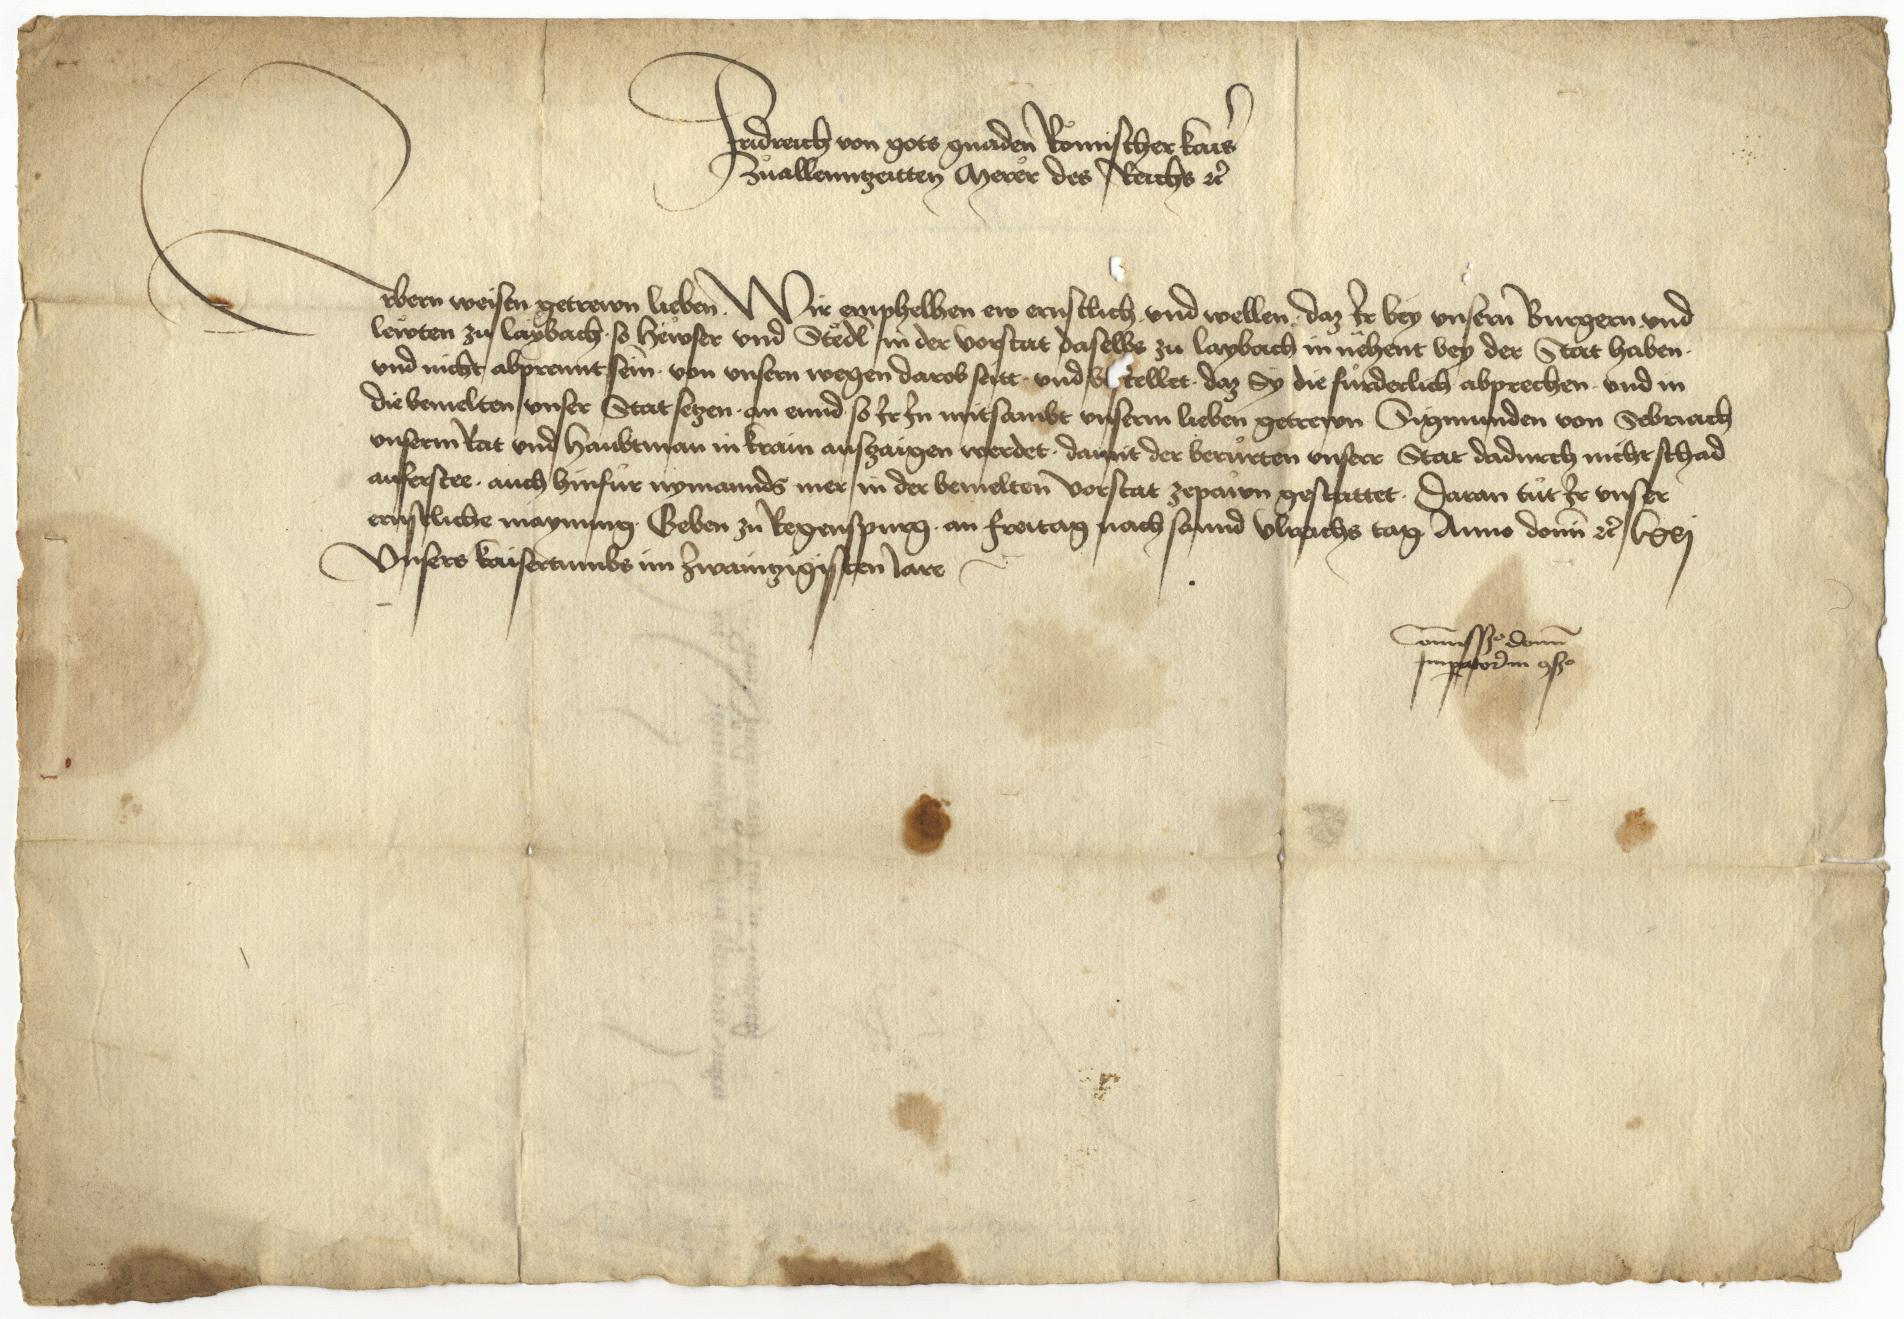 Fridreich von gots gnaden Römischer kais
Zuallenntzeitten Merer des Reichs etc
Erbern weisen getrewn lieben. Wir emphelhen ew ernstlich. vnd wellen. daz Ir bey vnsern Burgern vnd
lewten zu laybach. so hewser vnd Stedl in der vorstat daselbs zu laybach in nehent bey der Stat haben.
vnd nicht abprennt sein. von vnsern wegen darob seitt. vnd bestellet. daz Sy die fürderlich abprechen. vnd in
die bemelten vnser Stat setzen. an ennd so Ir In mitsambt vnserm lieben getrewn Sigmunden von Sebriach
vnserm Rat vnd Haubtman in krain auszaigen werdet. damit der berürten vnserr Stat dadurch nicht schad
auferstee. auch hinfür nymannds mer in der bemelten vorstat zepawn gestattet. Daran tut Ir vnser
ernstliche maynung. Geben zu Regenspurg. an freitag nach sannd vlreichs tag Anno domi etc lxxj
Vnsers kaisertumbs im zwaintzigisten Jare
Comissio domi
impatoris in 9sio